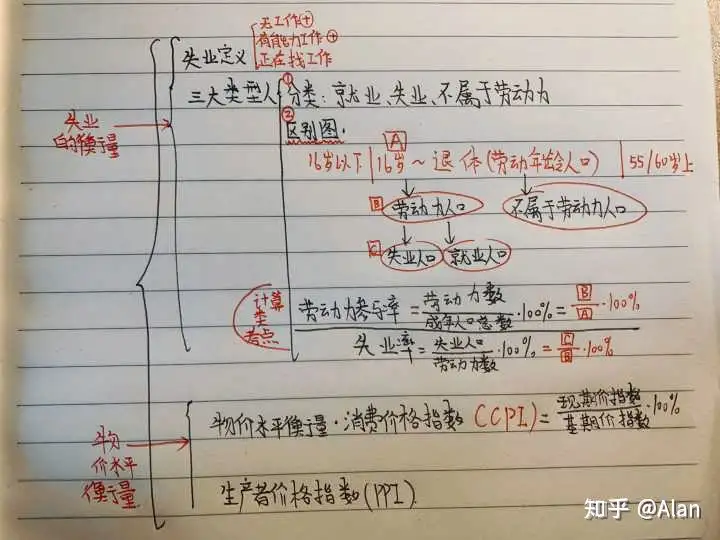 无工作⊕
有能力工作⊕
正在找工作
失业定义
① 
三大类型人 分类：就业、失业、不属于劳动力
②
区别图.
失业
的衡量
A
16岁以下|16岁～退休(劳动年龄人口)|55/60岁上
B 劳动力人口 不属于劳动力人口
C 失业人口 就业人口
计算
类
考点
劳动力参与率=劳动力数/成年人口总数·100%=B/A·100%
失业率=失业人口/劳动力数·100%=C/B·100%
物价水平衡量·消费价格指数(CPI)=现期价指数/基期价指数·100%
物
价水平
衡量
生产者价格指数(PPI)
知乎 @Alan